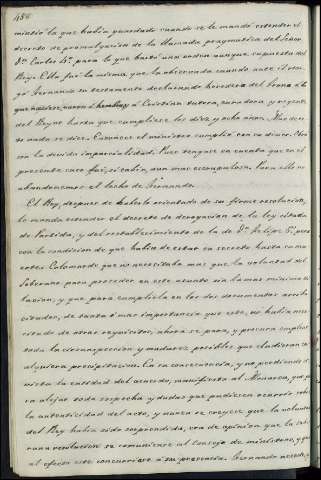 486
mintió la que había guardado cuando se le mandó estender el
decreto de promulgacion de la llamada pragmática del Señor
Dn Carlos 4º para lo que bastó una orden aunque supuesta del
Rey. Ella fué la misma que la observada cuando ante él otor-
gó Fernando su testamento declarando heredera del trono á lo
que naciese, varon ó hembra, y á Cristina tutora, curadora y regente
del Reyno hasta que cumpliese los diez y ocho años.
se nada se dice. Entonces el ministro cumplió con su deber. Obró
con la devida imparcialidad. Pues téngase en cuenta que en el
presente caso fué, si cabe, aun mas escrupuloso. Para ello no
abandonemos el lecho de Fernando.
El Rey, despues de haberle enterado de su firme resolucion,
le manda estender el decreto de derogacion de la ley citada
de Partida, y del restablecimiento de la de Dn Felipe 5º, pero
con la condicion de que había de estar en secreto hasta
Calomarde que no necesitaba mas que la voluntad del
Soberano para proceder en este asunto sin la mas mínima di-
lacion, y que para cumplirla en los dos documentos arriba
citados, de tanta ó mas importancia que este, no había nece-
sitado de otros requisitos, ahora se para, y procura emplear
toda la circunspeccion y madurez posibles que eludieran cu-
alquiera precipitacion. En su consecuencia, y no perdiendo de
vista la entidad del acuerdo, manifiesta al Monarca, que pa-
ra alejar toda sospecha y dudas que pudiesen ocurrir sobre
la autenticidad del acto, y nunca se creyese que la voluntad
del Rey había sido sorprendida, era de opinion que la sobe-
rana resolucion se comunicase al Consejo de ministros, y que
al efecto este concurriese á su presencia. Fernando accede,